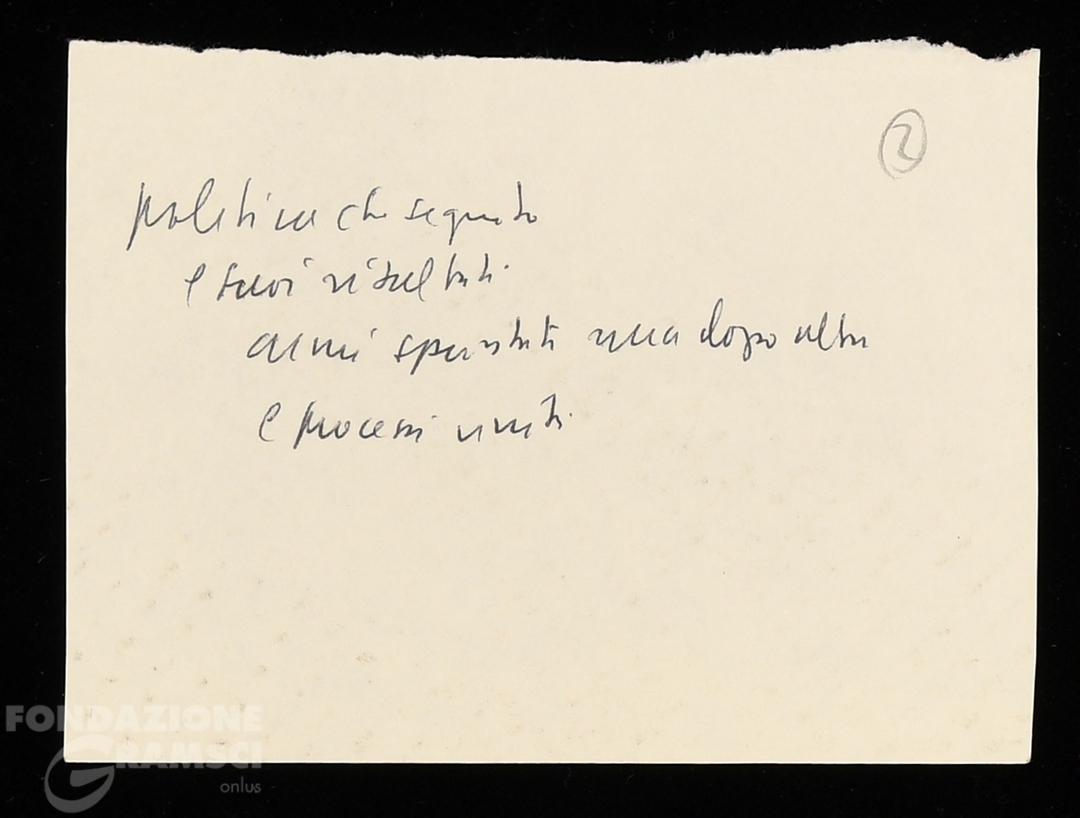 2
politica che seguito
e suoi risultati
armi spuntate una dopo altra
e processi uniti
FONDAZIONE
GRAMSCI
onlus